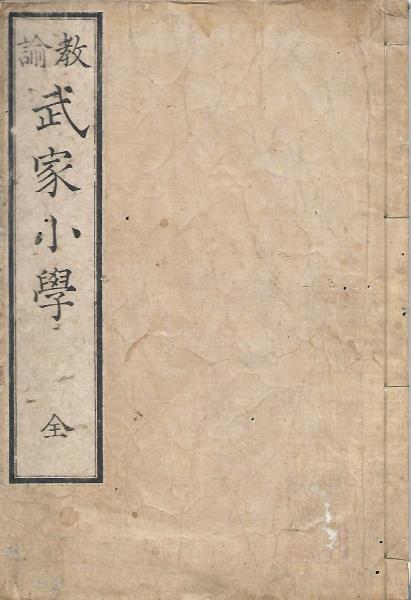 教諭
武家小學
全